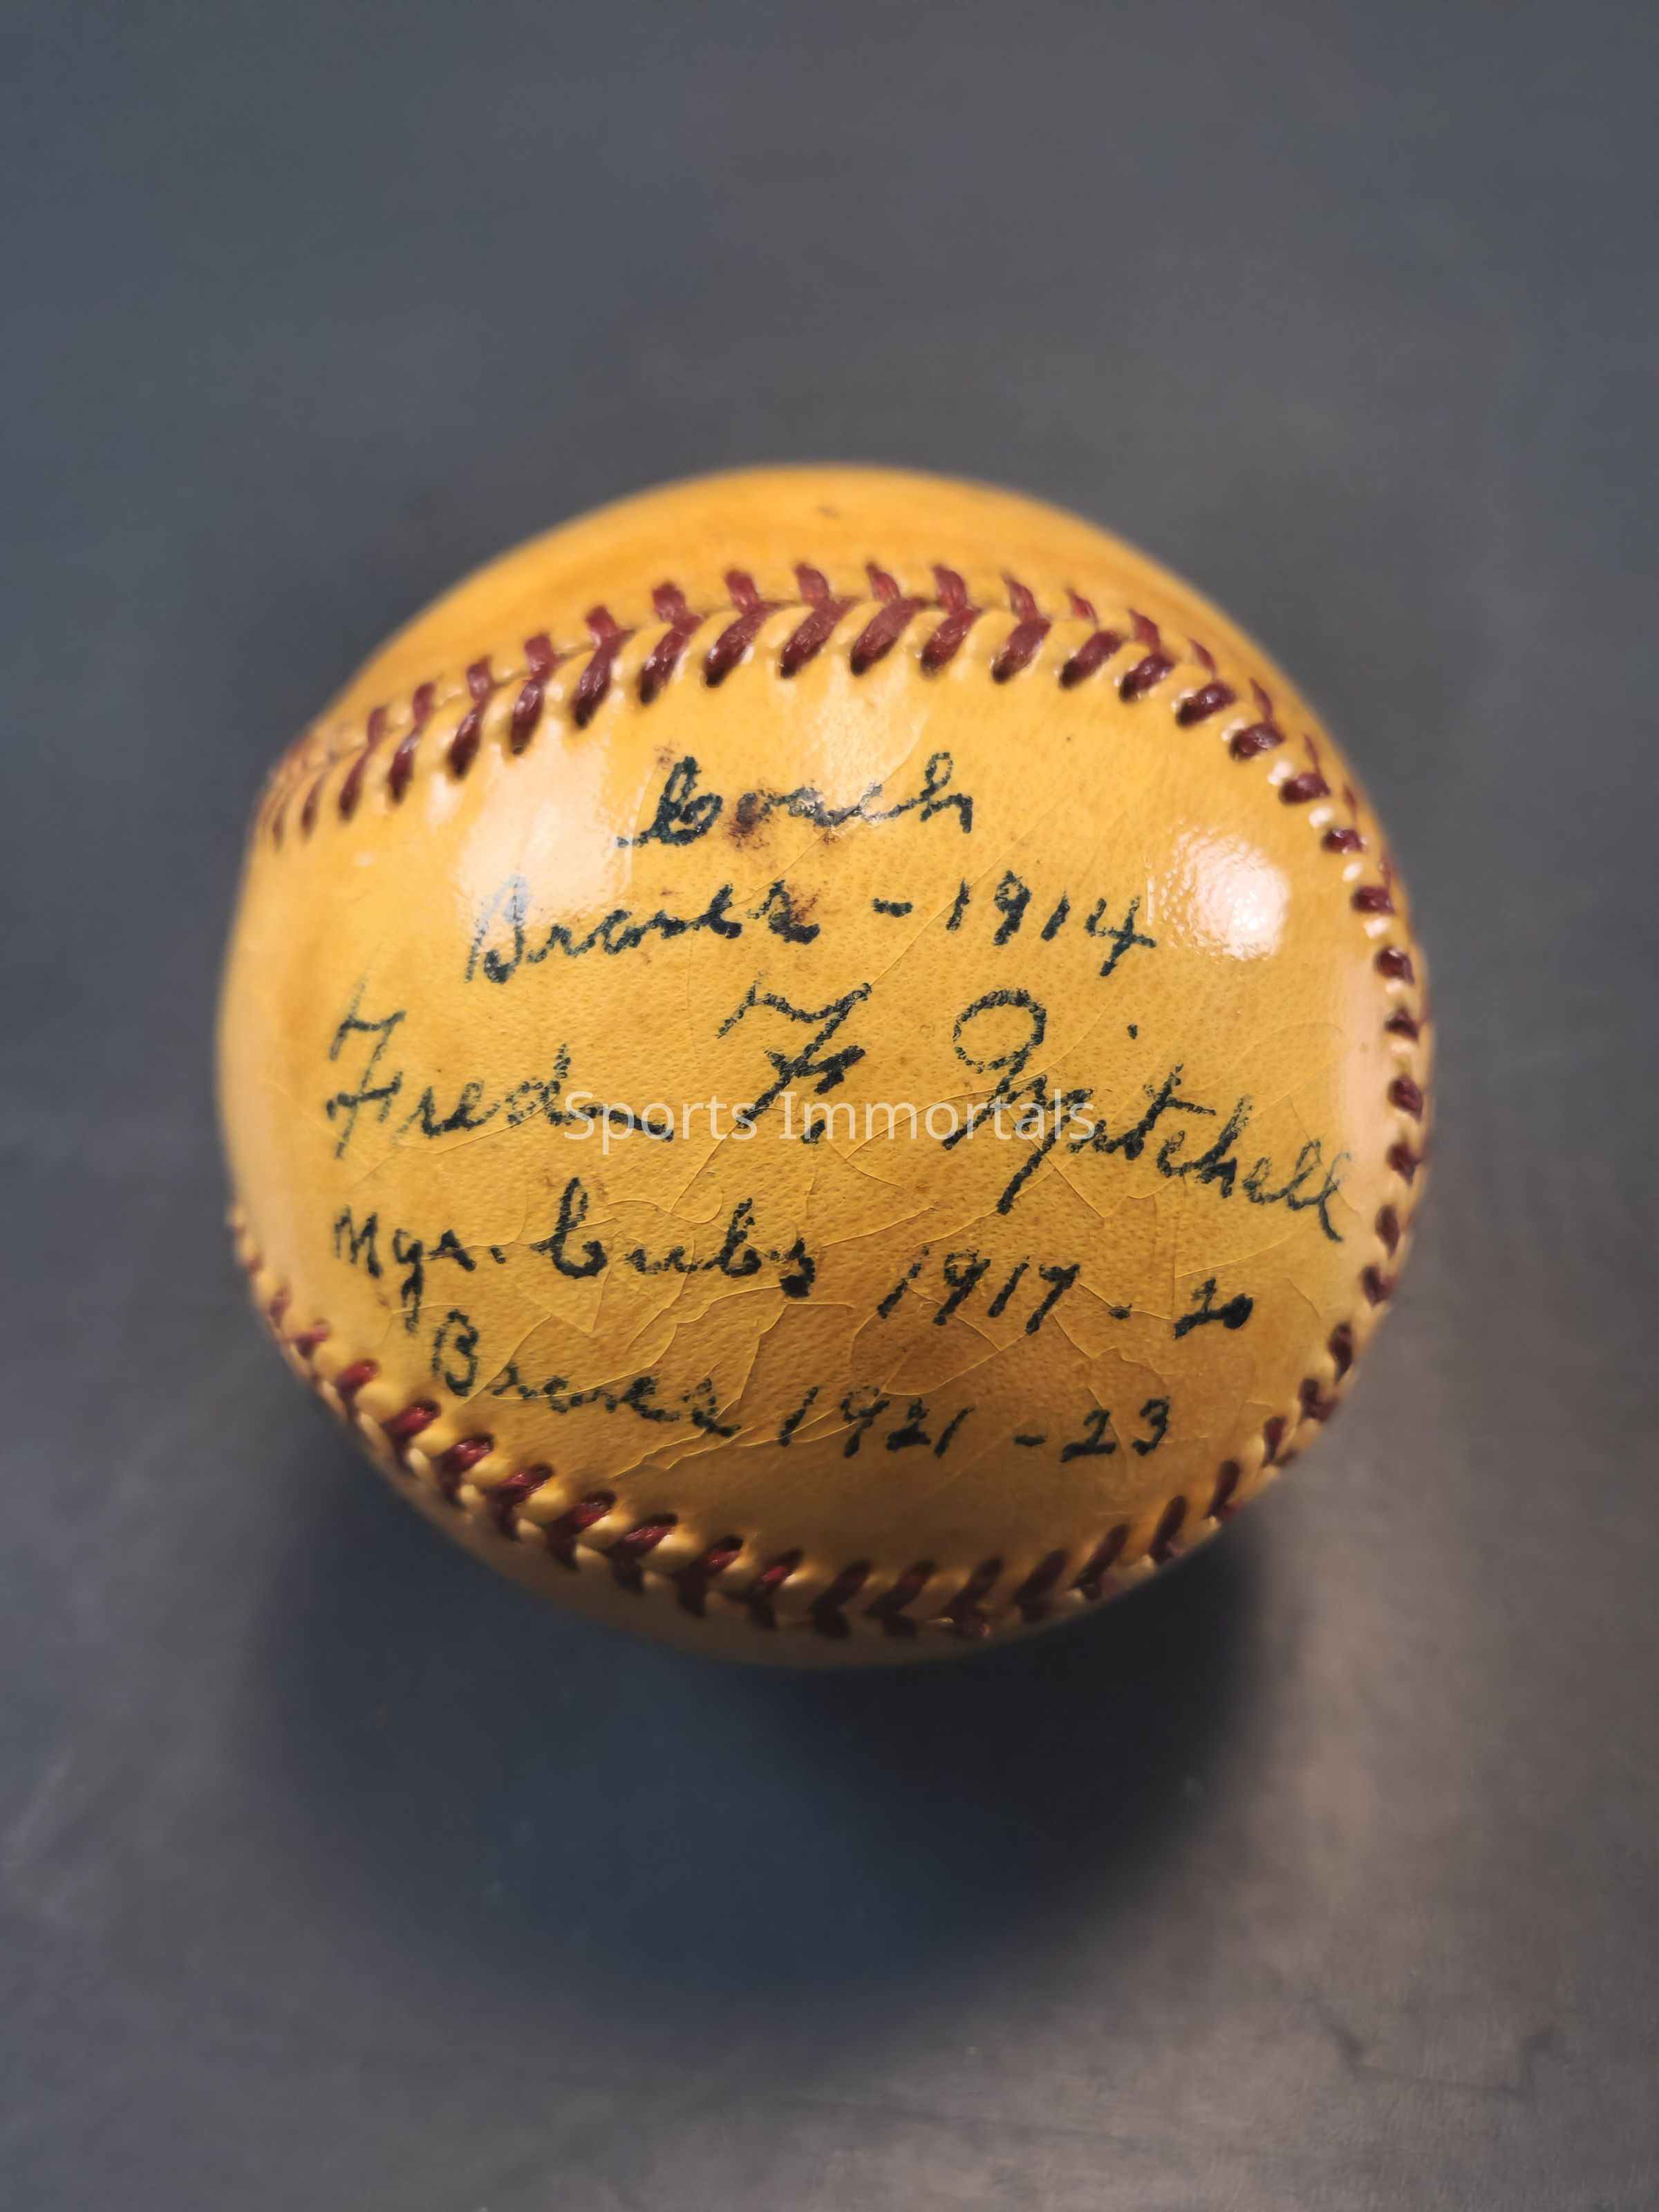 Coach
Braves - 1914
Fred F. Mitchell
Sports Immortals
Mgr. Cubs 1917 - 20
Braves 1921 - 23